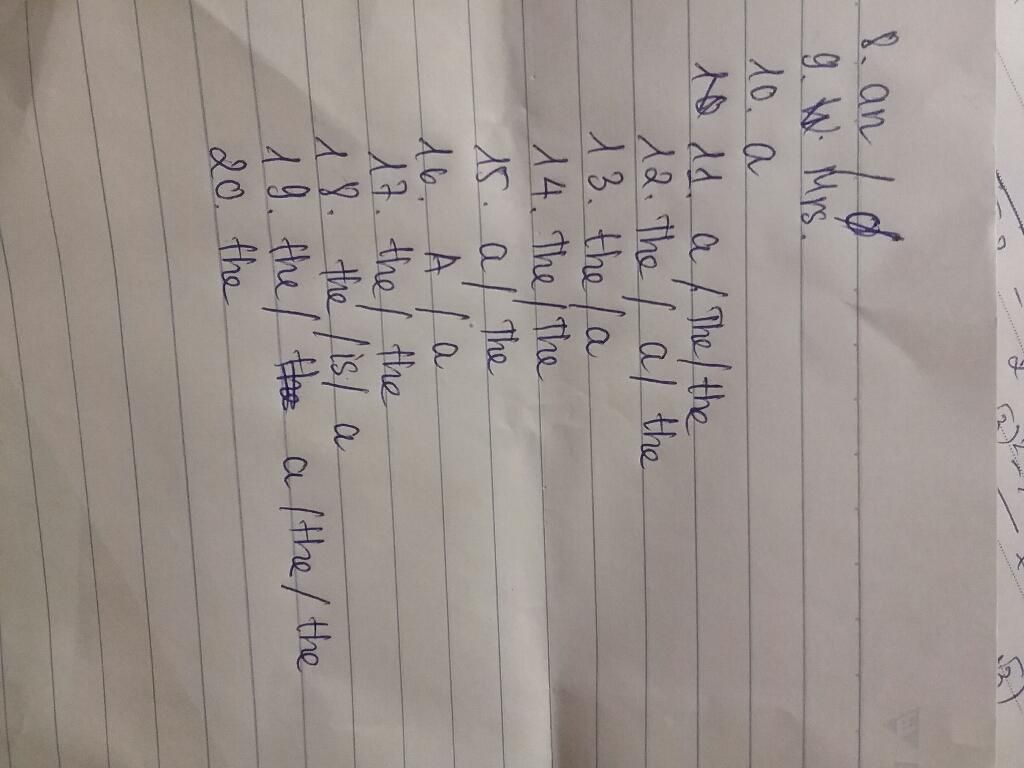 8. an / ø
9. Mrs.
10. a
11. a / The / the
12. The / a / the
13. the / a
14. The / the
15. a / The
16. A / a
17. the / the
18. the / is / a
19. the / a / the / the
20. the